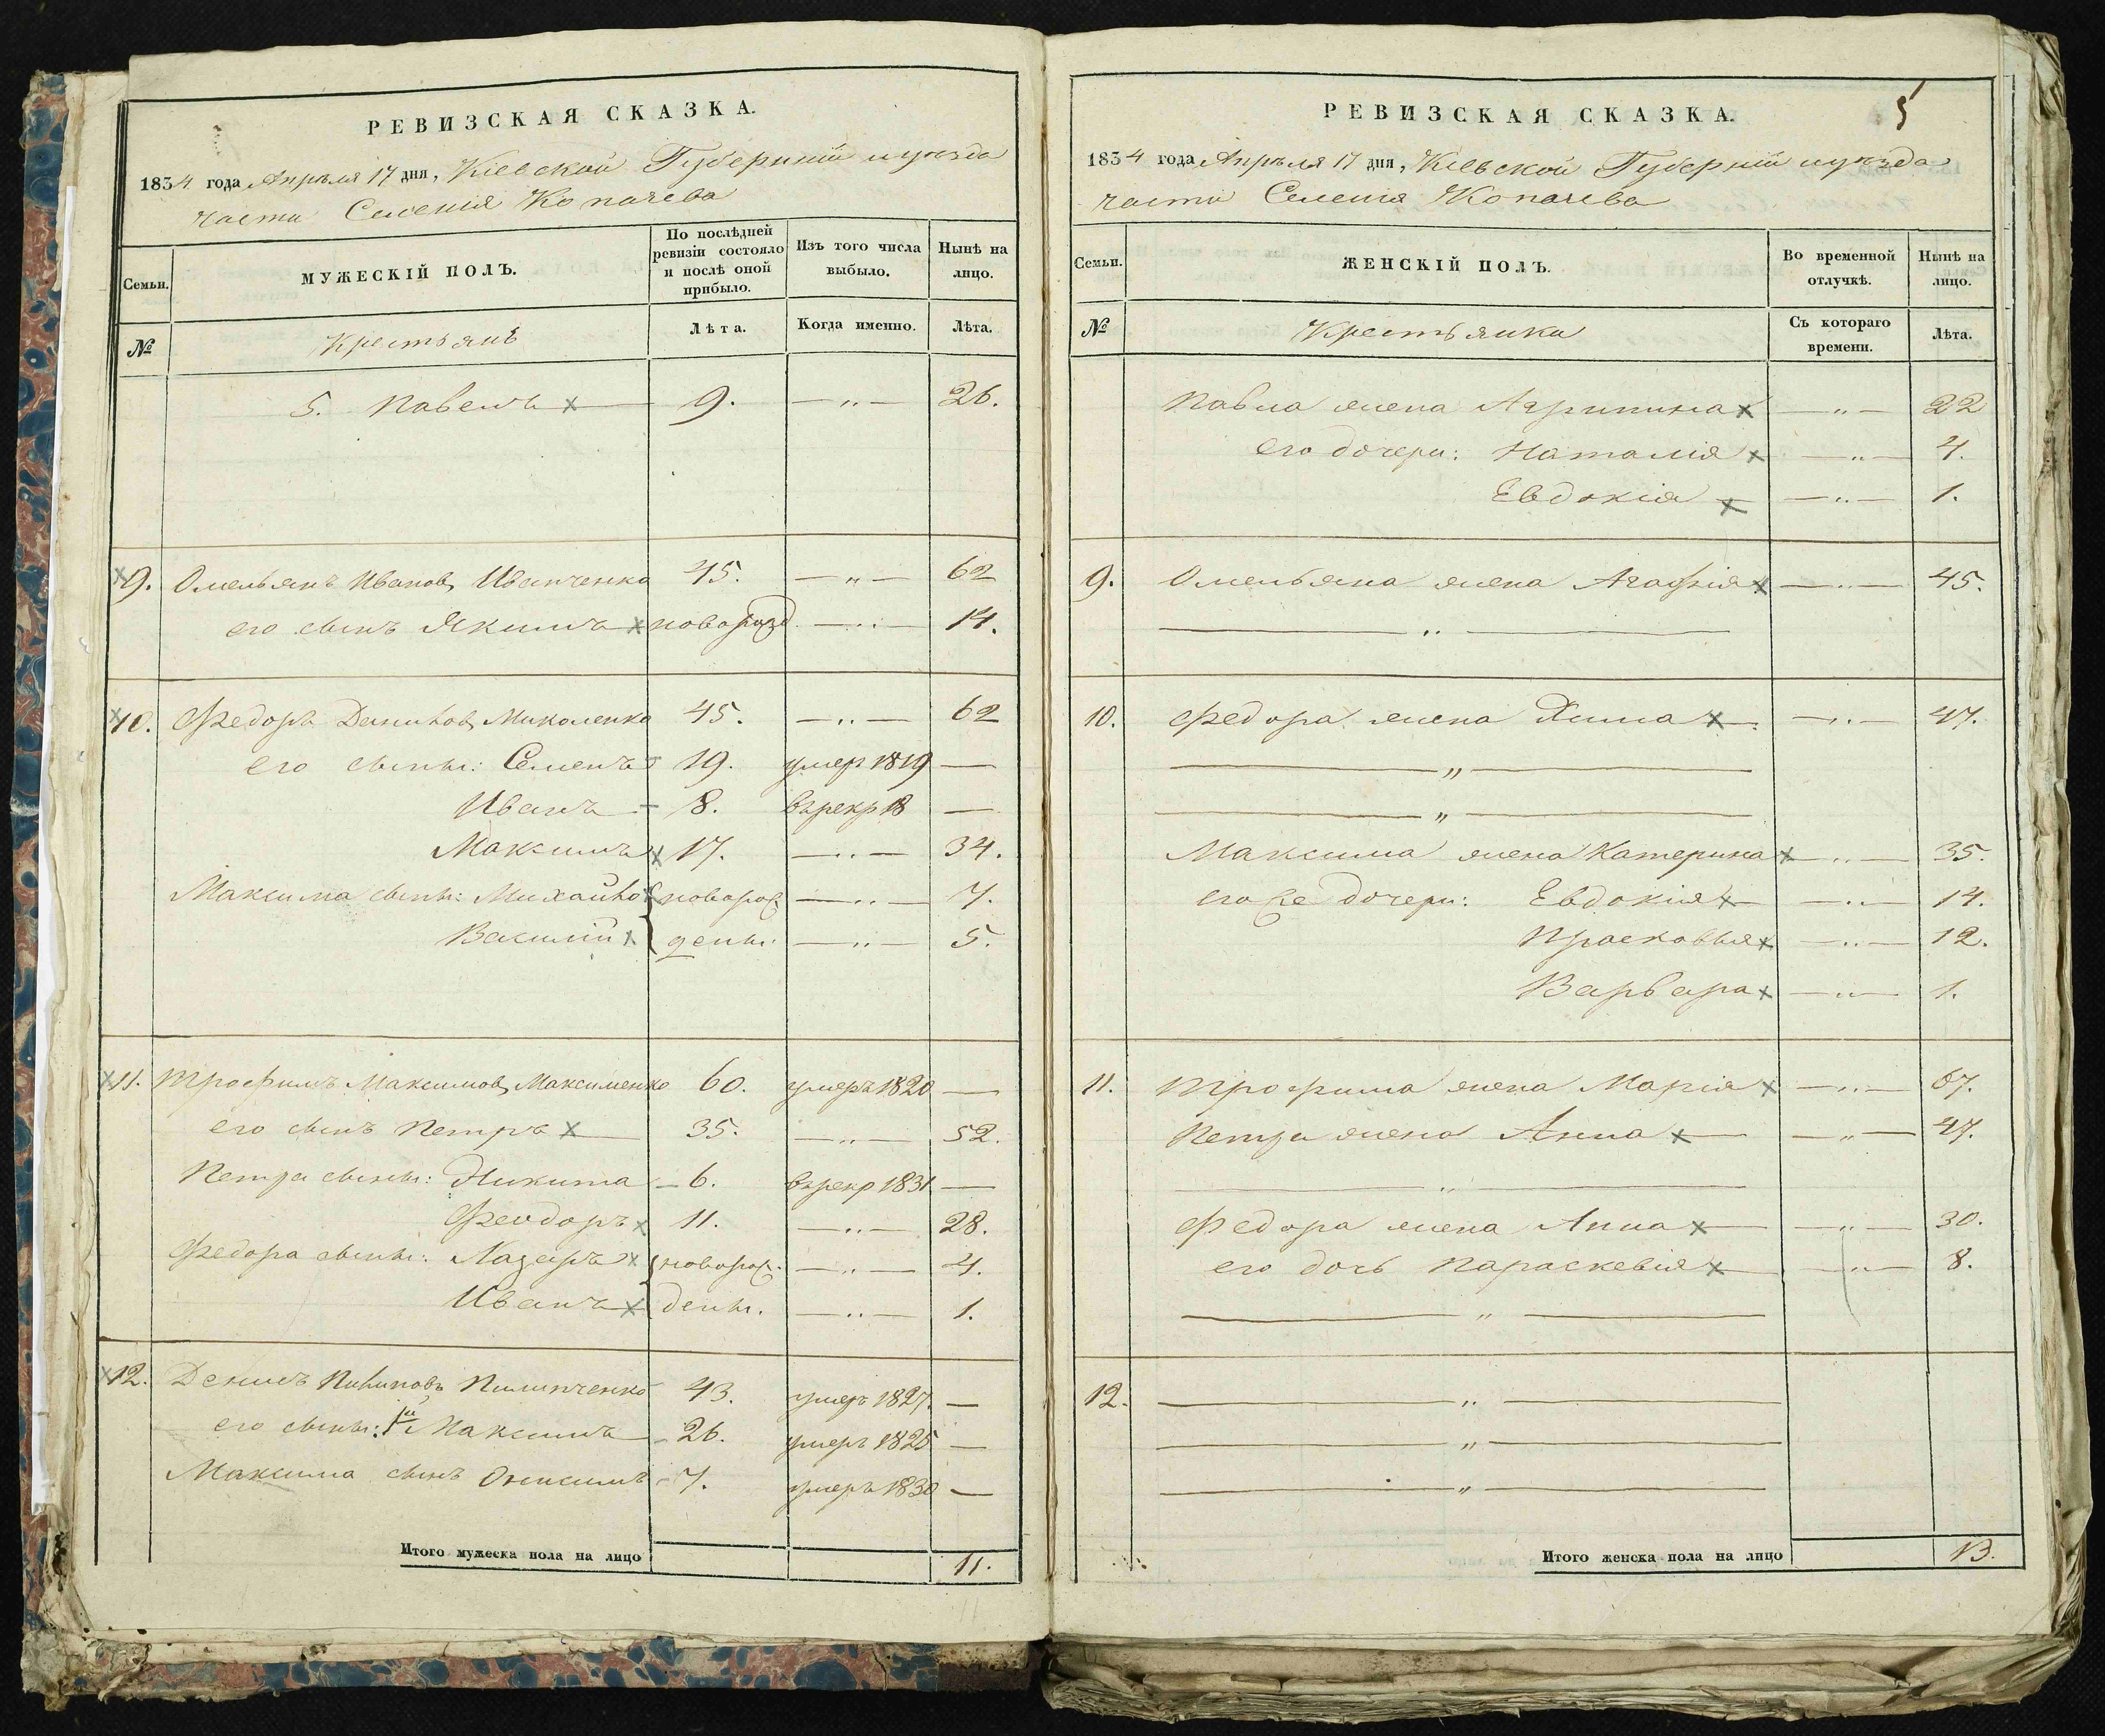 РЕВИЗСКАЯ СКАЗКА.
1834 года Апрѣля 17 дня, Кіевской Губерніи и уѣзда
части Селенія Копачева
Семьи.
МУЖЕСКІЙ ПОЛЪ.
По послѣдней ревизіи состояло и послѣ оной прибыло.
Изъ того числа выбыло.
Нынѣ на лицо.
№
Крестьянѣ
Лѣта.
Когда именно.
Лѣта.
5. Павелъ х 9. — „ — 26.
х9. Омельянъ Иванов, Иванченко 45. — „ — 62
его сынъ Якимъ х новорожд — „ — 14.
х10. Федоръ Данилов, Миколенко 45. — „ — 62
его сыны: Семенъ 19. умер 1819 —
Иванъ 8. въ рекр 18 —
Максимъ х 17. — „ — 34.
Максима сыны: Михайло х новорож — „ — 7.
Василій х дены. — „ — 5.
х11. Трофимъ Максимов, Максименко 60. умеръ 1820 —
его сынъ Петръ х 35. — „ — 52.
Петра сыны: Никита 6. въ рекр 1831 —
Феодоръ х 11. — „ — 28.
Федора сыны: Назаръ х новорож. — „ — 4.
Иванъ х дены. — „ — 1.
х12. Денисъ Пилиповъ Пилипченко 43. умеръ 1827. —
его сыны: 1й Максимъ 26. умеръ 1825 —
Максима сынъ Онисимъ 7. умеръ 1830 —
Итого мужеска пола на лицо 11.
5
РЕВИЗСКАЯ СКАЗКА.
1834 года Апрѣля 17 дня, Кіевской Губерніи и уѣзда
части Селенія Копачева
Семьи.
ЖЕНСКІЙ ПОЛЪ.
Во временной отлучкѣ.
Нынѣ на лицо.
№
Крестьянка
Съ котораго времени.
Лѣта.
Павла жена Агрипина х — „ — 22
его дочери: Наталія х — „ — 4.
Евдокія х — „ — 1.
9. Омельяна жена Агафія х — „ — 45.
— „ —
10. Федора жена Химa х — „ — 47.
— „ —
— „ —
Максима жена Катерина х — „ — 35.
его же дочери: Евдокія х — „ — 14.
Прасковья х — „ — 12.
Варвара х — „ — 1.
11. Трофима жена Марія х — „ — 67.
Петра жена Анна х — „ — 47.
— „ —
Федора жена Анна х — „ — 30.
его дочь Параскевія х — „ — 8.
— „ —
12. — „ —
— „ —
— „ —
Итого женска пола на лицо 13.